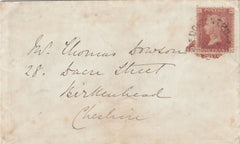 Mr. Thomas Dowson
28. Dacre Street
Birkenhead
Cheshire